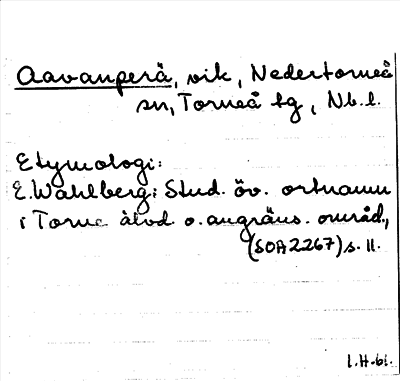 Aavanperä, vik, Nedertorneå
sn, Torneå tg, Nb.l.
Etymologi:
E. Wahlberg: Stud. öv. ortnamn
i Torne älvd. o. angräns. områd.,
(SOA 2267) s. 11.
I.H-61.